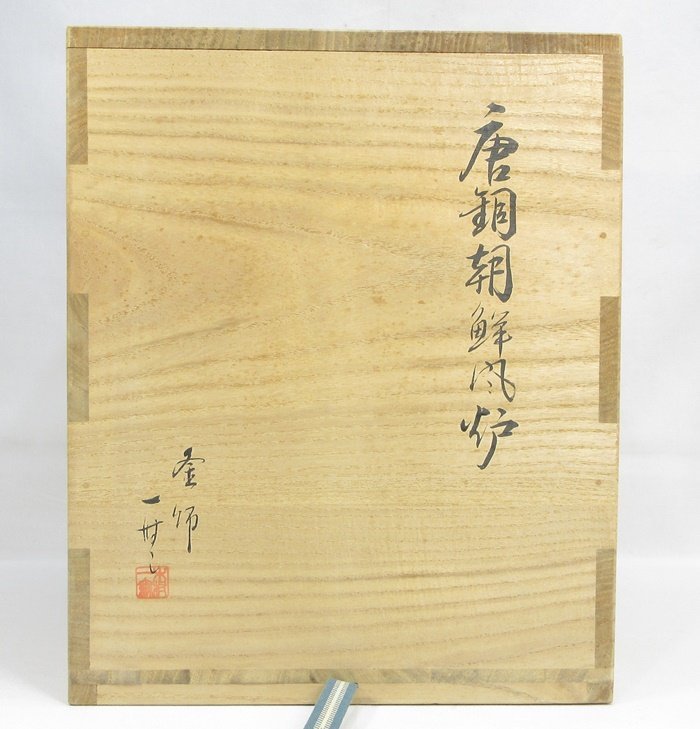 唐銅朝鮮風炉
釜師
一